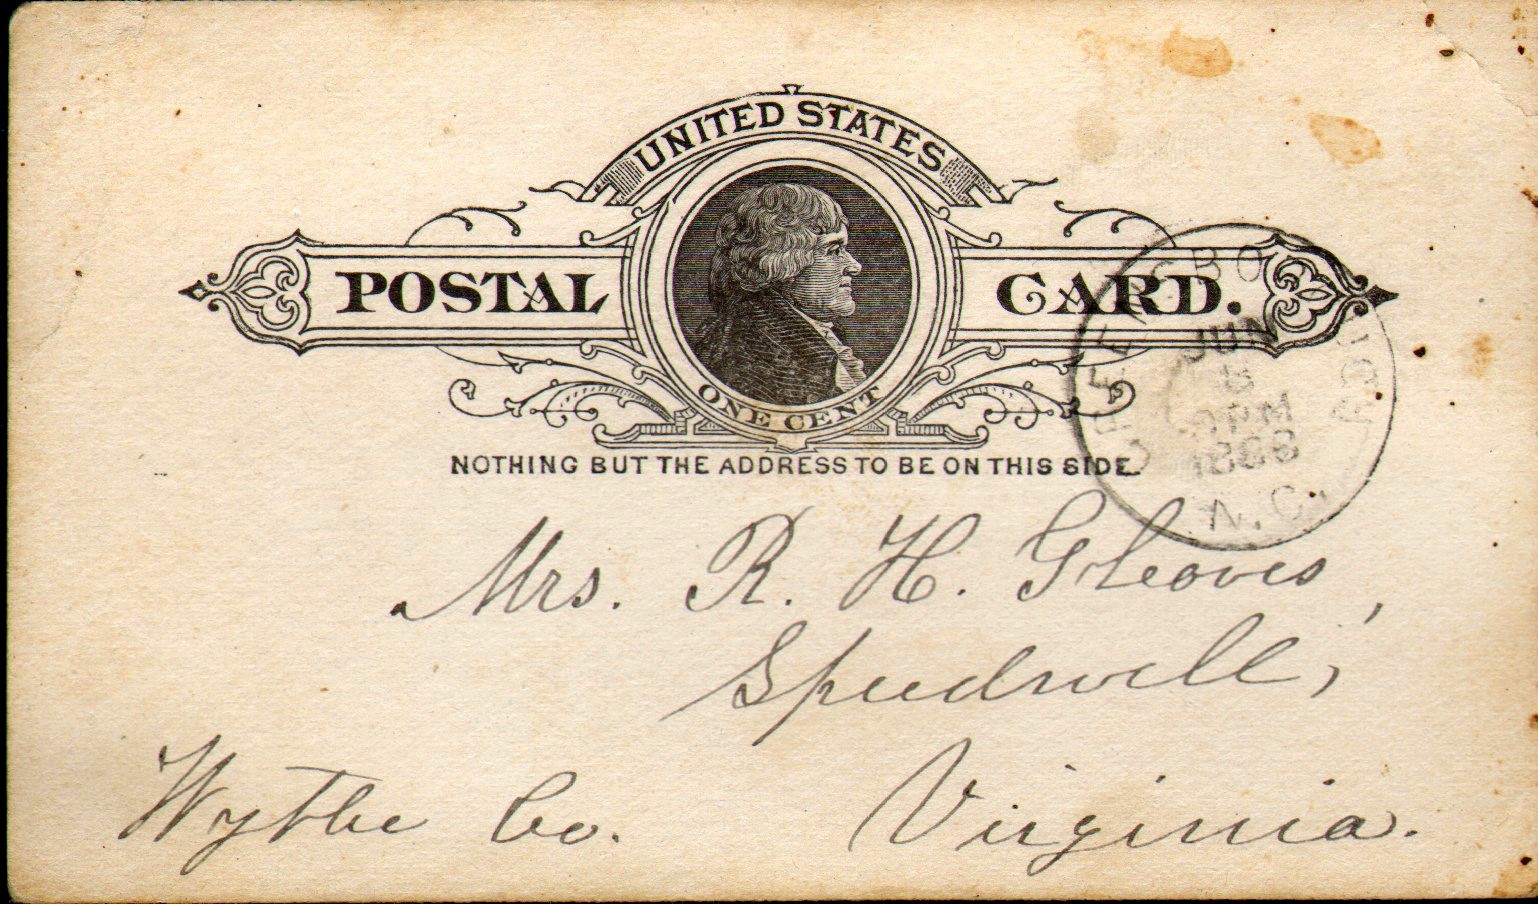 UNITED STATES
POSTAL CARD.
ONE CENT
NOTHING BUT THE ADDRESS TO BE ON THIS SIDE.
JUN
PM
1888
N.C.
Mrs. R. H. Gleaves,
Speedwell,
Wythe Co. Virginia.